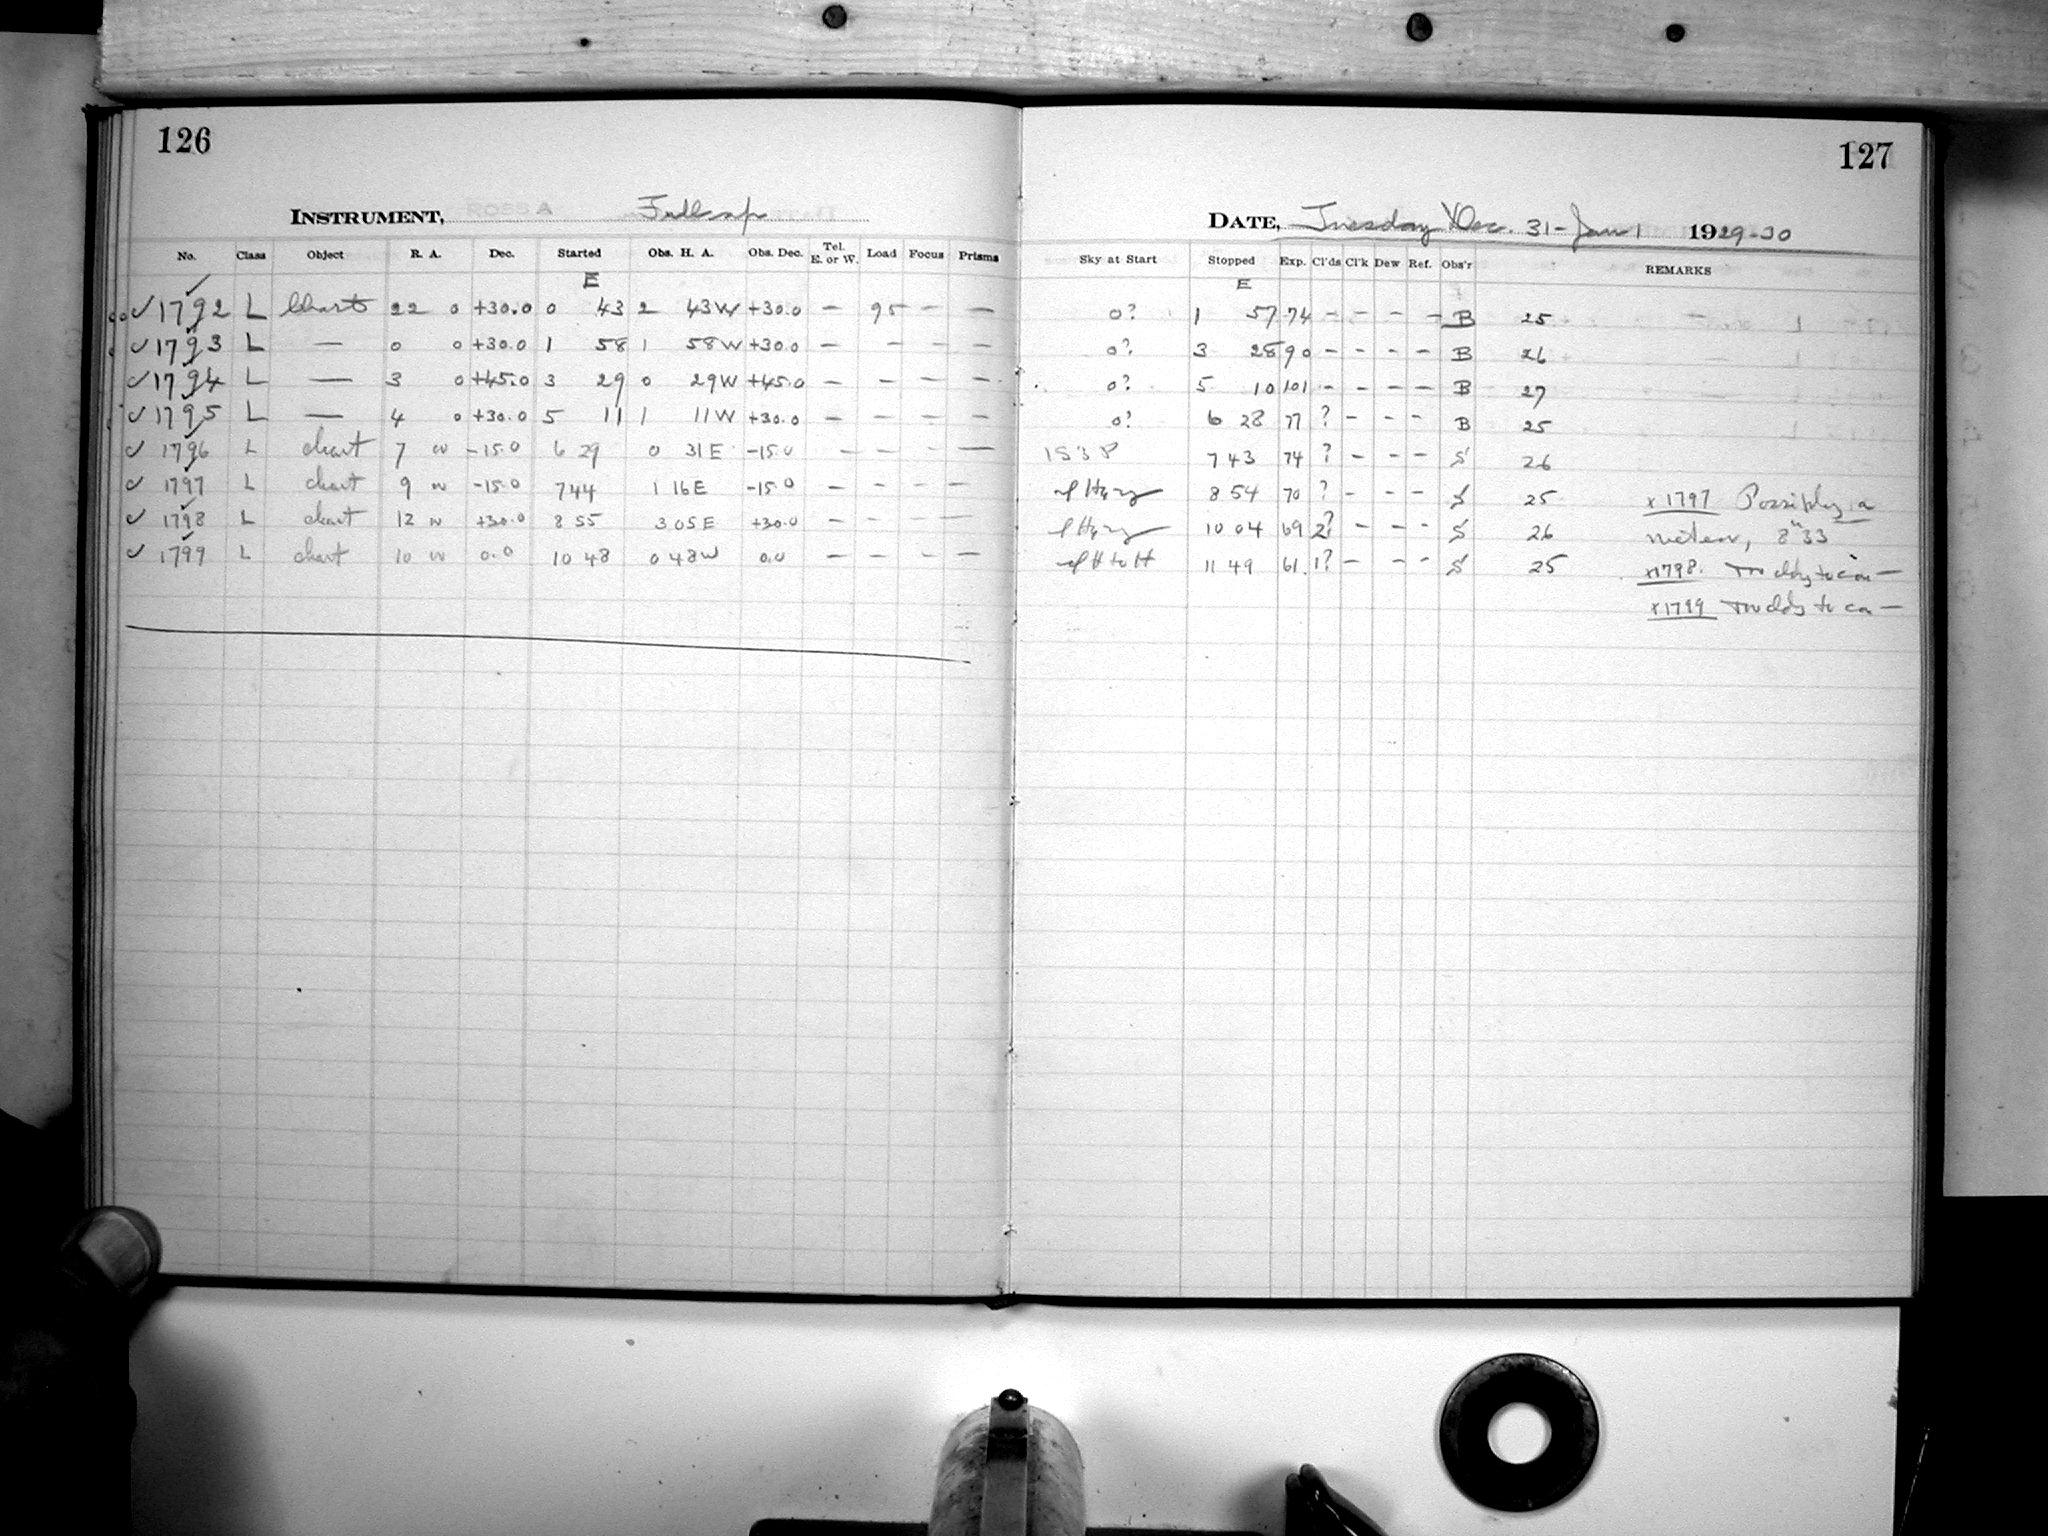 126
INSTRUMENT, ROSS A Full ap
No. Class Object R. A. Dec. Started Obs. H. A. Obs. Dec. Tel. E. or W. Load Focus Prisms
E
✓ 1792 L Chart 22 0 +30.0 0 43 2 43W +30.0 – 95 – –
✓ 1793 L — 0 0 +30.0 1 58 1 58W +30.0 – – – –
✓ 1794 L — 3 0 +45.0 3 29 0 29W +45.0 – – – –
✓ 1795 L — 4 0 +30.0 5 11 1 11W +30.0 – – – –
✓ 1796 L chart 7 w -15.0 6 29 0 31E -15.0 – – – —
✓ 1797 L chart 9 w -15.0 7 44 1 16E -15.0 – – – –
✓ 1798 L chart 12 w +30.0 8 55 3 05E +30.0 – – – —
✓ 1799 L chart 10 w 0.0 10 48 0 48W 0.0 – – – –
127
DATE, Tuesday Dec. 31-Jan 1 1929-30
Sky at Start Stopped Exp. Cl'ds Cl'k Dew Ref. Obs'r REMARKS
E
0? 1 57 74 – – – – B 25
0? 3 28 90 – – – – B 26
0? 5 10 101 – – – – B 27
0? 6 28 77 ? – – – B 25
1S3P 7 43 74 ? – – – S 26
8 54 70 ? – – – S 25 x1797 Possibly a
10 04 69 2? – – – S 26 meteor, 8h33
11 49 61 1? – – – S 25 x1798.
x1799